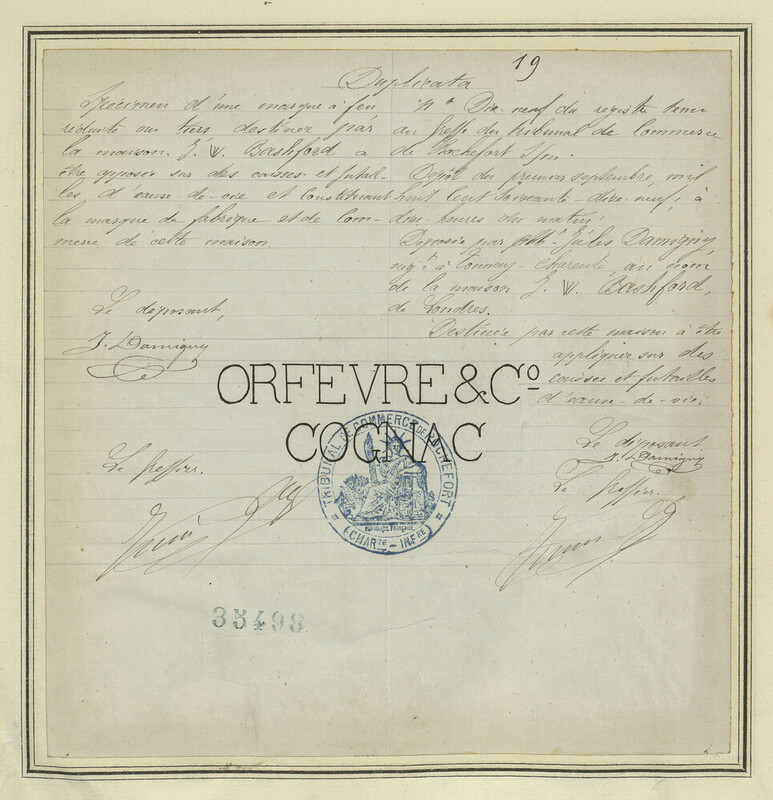 19
Duplicata
Spécimen d'une marque à feu
réduite au tiers destinée par
la maison J. W. Bashford a
être apposée sur des caisses et futail-
les d'eaux-de-vie et constituant
la marque de fabrique et de com-
merce de cette maison.
Le déposant,
J. Damigny
Le greffier.
N° Dix-neuf du registre tenu
au Greffe du tribunal de Commerce
de Rochefort s/m.
Dépôt du premier septembre, mil
huit cent soixante-dix-neuf, à
dix heures du matin;
Déposée par Mr Jules Damigny,
négt à Tonnay-Charente, au nom
de la maison J. W. Bashford,
de Londres.
Destinée par cette maison à être
appliquée sur des
caisses et futailles
d'eaux-de-vie.
Le déposant
J. Damigny
Le greffier.
ORFEVRE & Co
COGNAC
TRIBUNAL DE COMMERCE DE ROCHEFORT
RÉPUBLIQUE FRANÇAISE
(CHARTE - INFRE)
35498